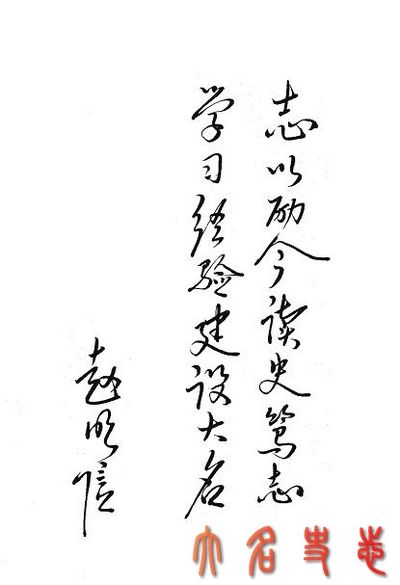 志以励今读史笃志
学习经验建设大名
赵明信
大名史志